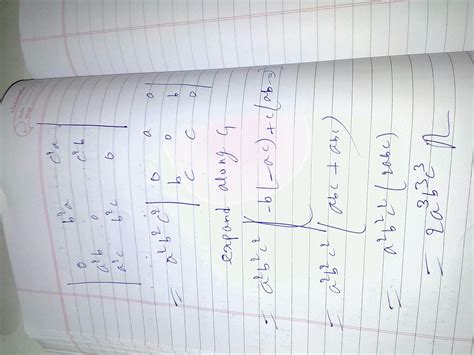 | 0 b²a c²a |
| a²b 0 c²b |
| a²c b²c 0 |
= a²b²c² | 0 a a |
| b 0 b |
| c c 0 |
expand along C₁
= a²b²c² { -b(-ac) + c(ab-0)
= a²b²c² (abc + abc)
= a²b²c² (2abc)
= 2a³b³c³